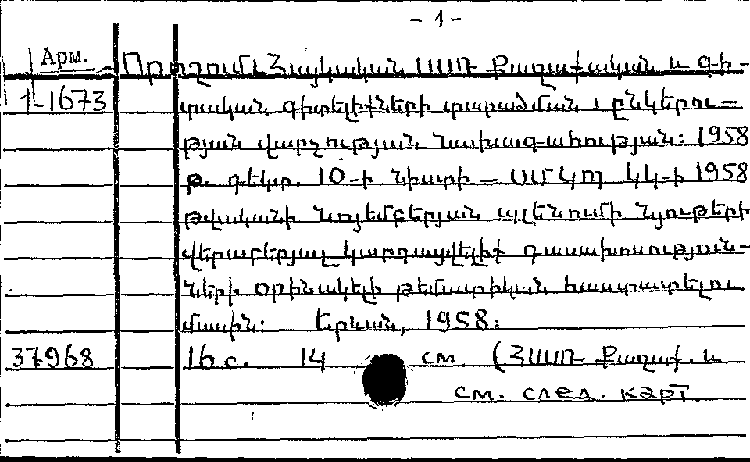 - 1 -
Арм. Որոշում Հայկական ՍՍՌ Քաղաքական և գի-
1-1673 տական գիտելիքների տարածման ընկերու-
թյան վարչության նախագահության: 1958
թ. դեկտ. 10-ի նիստի - ՍՄԿՊ ԿԿ-ի 1958
թվականի նոյեմբերյան պլենումի նյութերի
վերաբերյալ կարդացվելիք դասախոսություն-
ների օրինակելի թեմատիկան հաստատելու
մասին: Երևան, 1958:
37968 16 с. 14 см. (ՀՍՍՌ Քաղաք. և
см. след. карт.